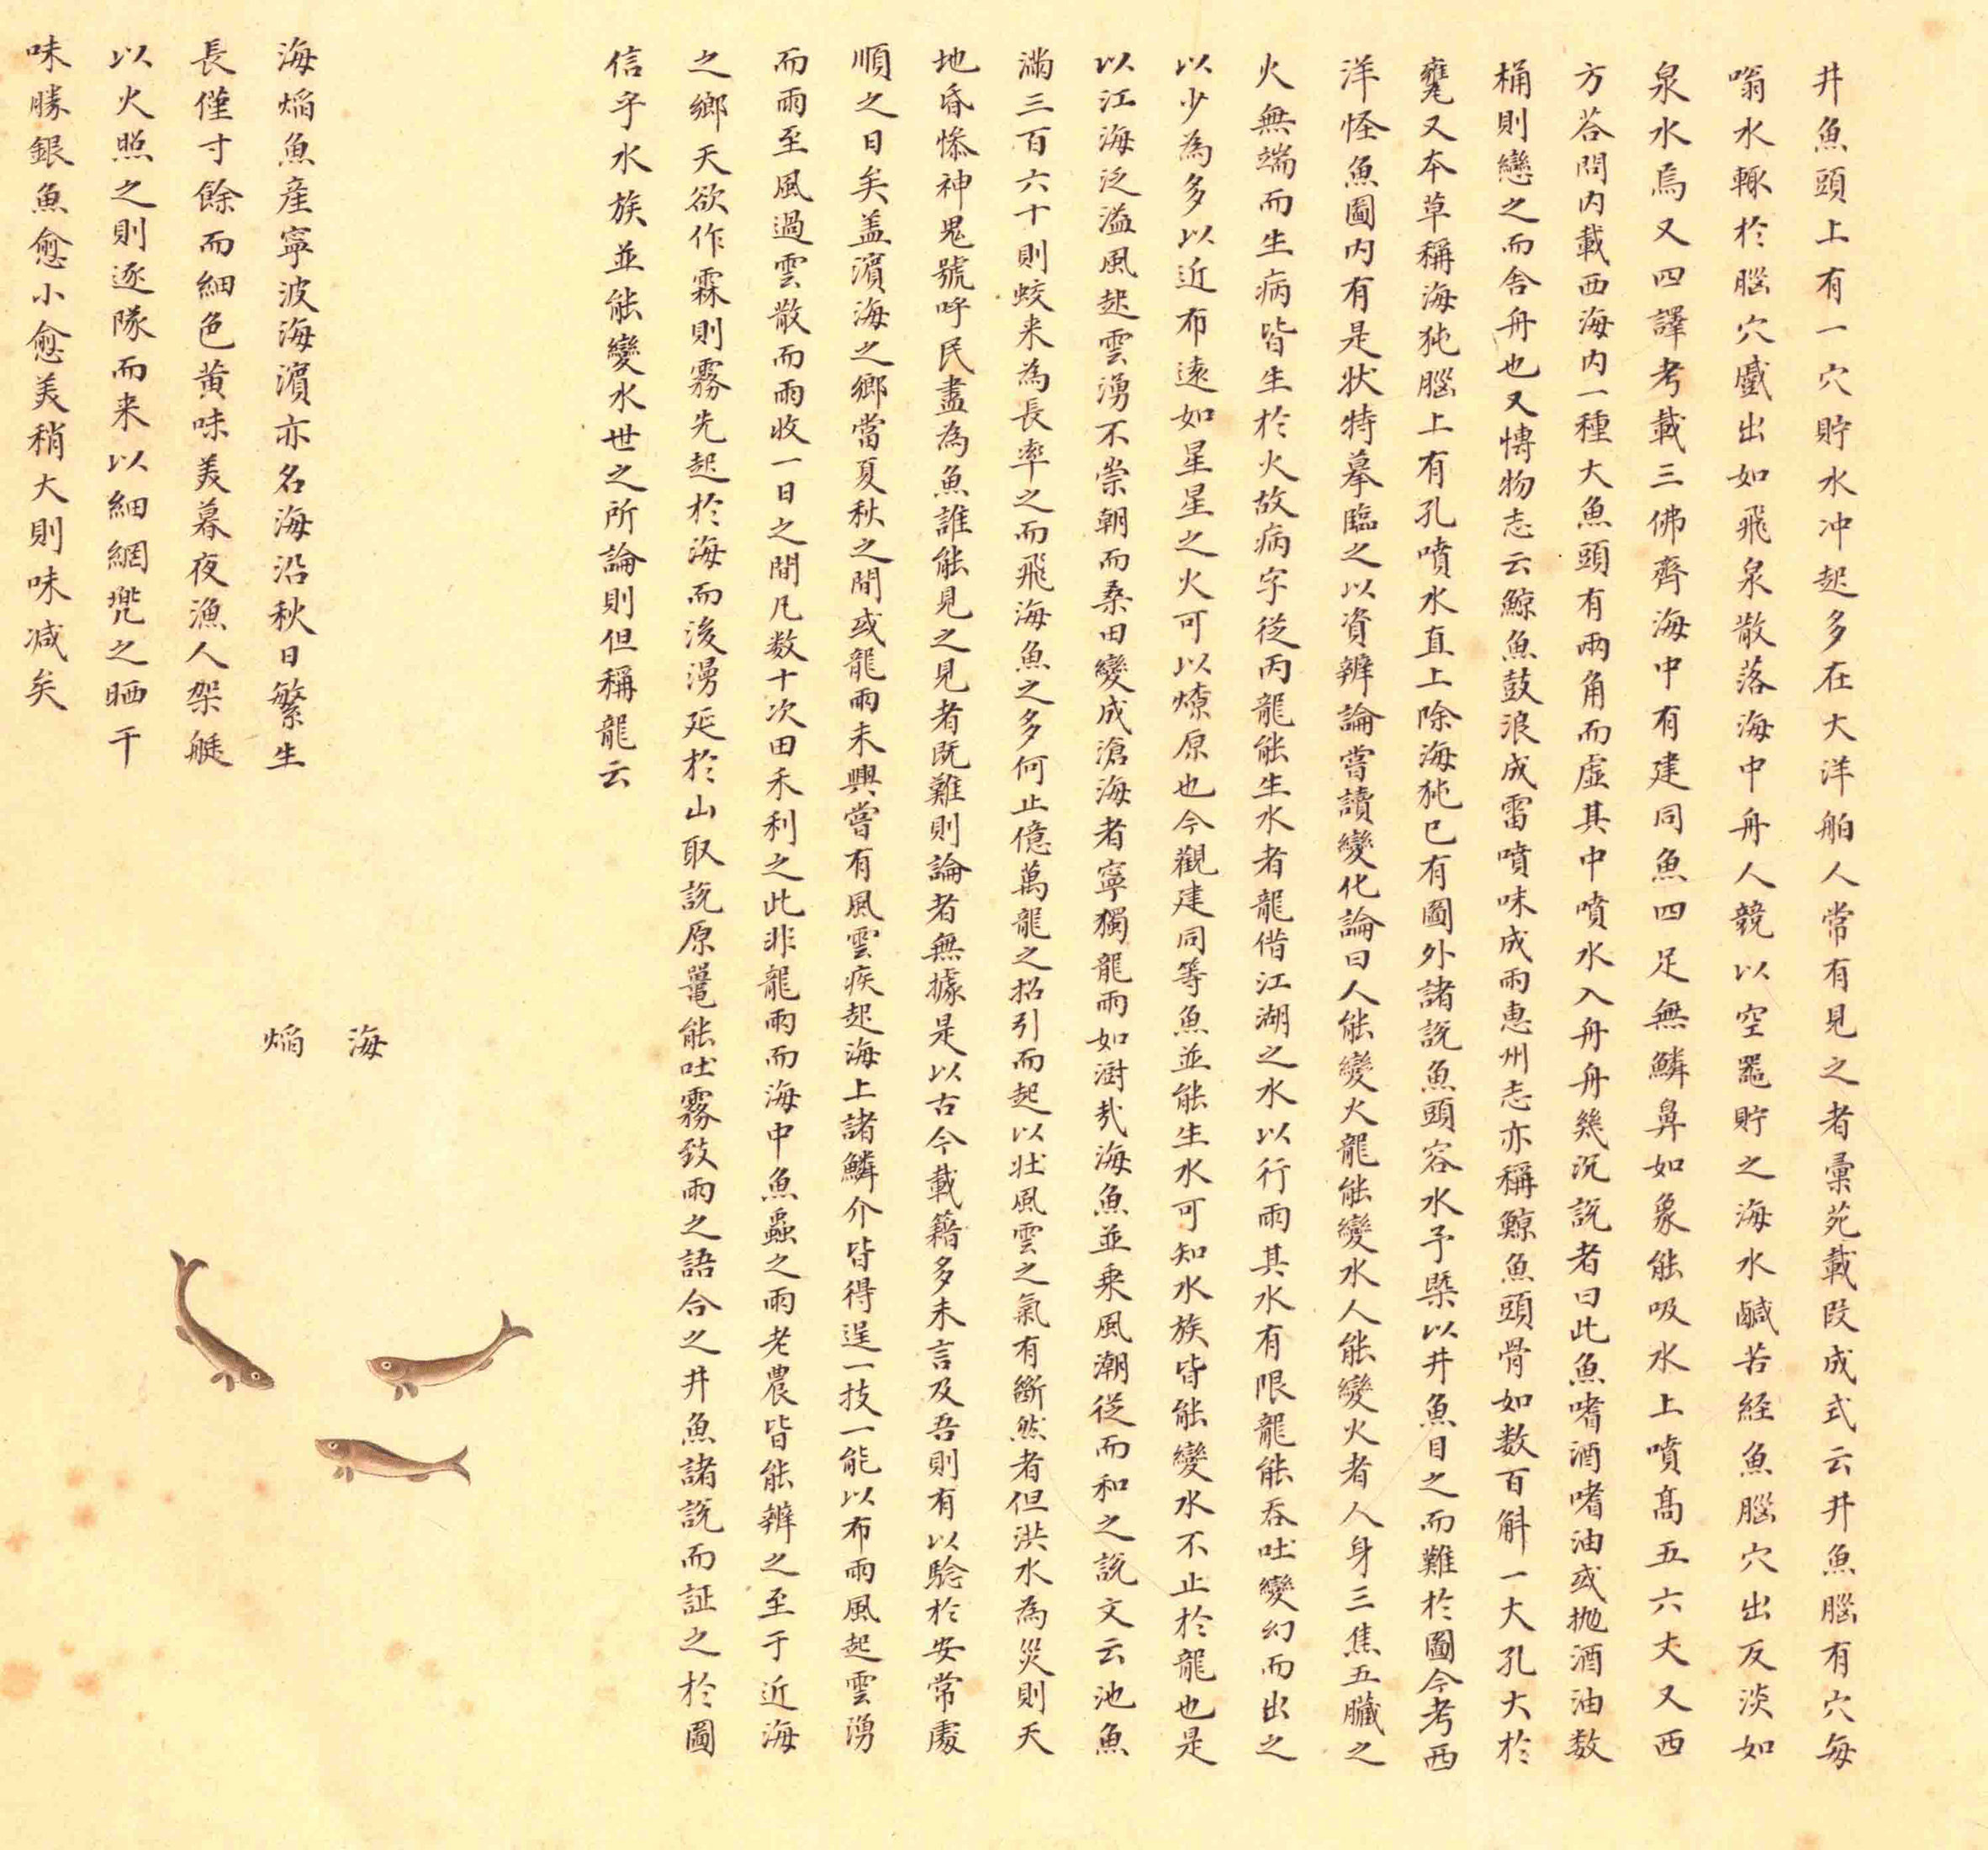 井魚頭上有一穴貯水冲起多在大洋舶人常有見之者彙苑載段成式云井魚腦有穴每
嗡水輒於腦穴蹙出如飛泉散落海中舟人競以空器貯之海水鹹苦経魚腦穴出反淡如
泉水焉又四譯考載三佛齊海中有建同魚四足無鱗鼻如象能吸水上噴髙五六丈又西
方荅問内載西海内一種大魚頭有兩角而虚其中噴水入舟舟幾沉説者曰此魚嗜酒嗜油或抛酒油数
桶則戀之而舍舟也又愽物志云鯨魚鼓浪成雷噴味成雨惠州志亦稱鯨魚頭骨如数百斛一大孔大於
甕又本草稱海㹠腦上有孔噴水直上除海㹠已有圖外諸説魚頭容水予槩以井魚目之而難於圖今考西
洋怪魚圖内有是状特摹臨之以資辨論嘗讀變化論曰人能變火龍能變水人能變火者人身三焦五臟之
火無端而生病皆生於火故病字従丙龍能生水者龍借江湖之水以行雨其水有限龍能吞吐變幻而出之
以少為多以近布遠如星星之火可以燎原也今觀建同等魚並能生水可知水族皆能變水不止於龍也是
以江海泛溢風起雲湧不崇朝而桑田變成滄海者寧獨龍雨如澍㢤海魚並乗風潮従而和之説文云池魚
滿三百六十則蛟来為長率之而飛海魚之多何止億萬龍之招引而起以壮風雲之氣有斷然者但洪水為災則天
地昏惨神鬼號呼民盡為魚誰能見之見者既難則論者無據是以古今載籍多未言及吾則有以騐於安常處
順之日矣盖濵海之鄉當夏秋之間或龍雨未興嘗有風雲疾起海上諸鱗介皆得逞一技一能以布雨風起雲湧
而雨至風過雲散而雨收一日之間凡数十次田禾利之此非龍雨而海中魚蟲之雨老農皆能辨之至于近海
之鄉天欲作霖則霧先起於海而後漫延於山取説原鼍能吐霧致雨之語合之井魚諸説而証之於圖
信乎水族並能變水世之所論則但稱龍云
海焰
海焰魚産寧波海濵亦名海沿秋日繁生
長僅寸餘而細色黄味美暮夜漁人架艇
以火照之則逐隊而来以細網兠之晒干
味勝銀魚愈小愈美稍大則味减矣